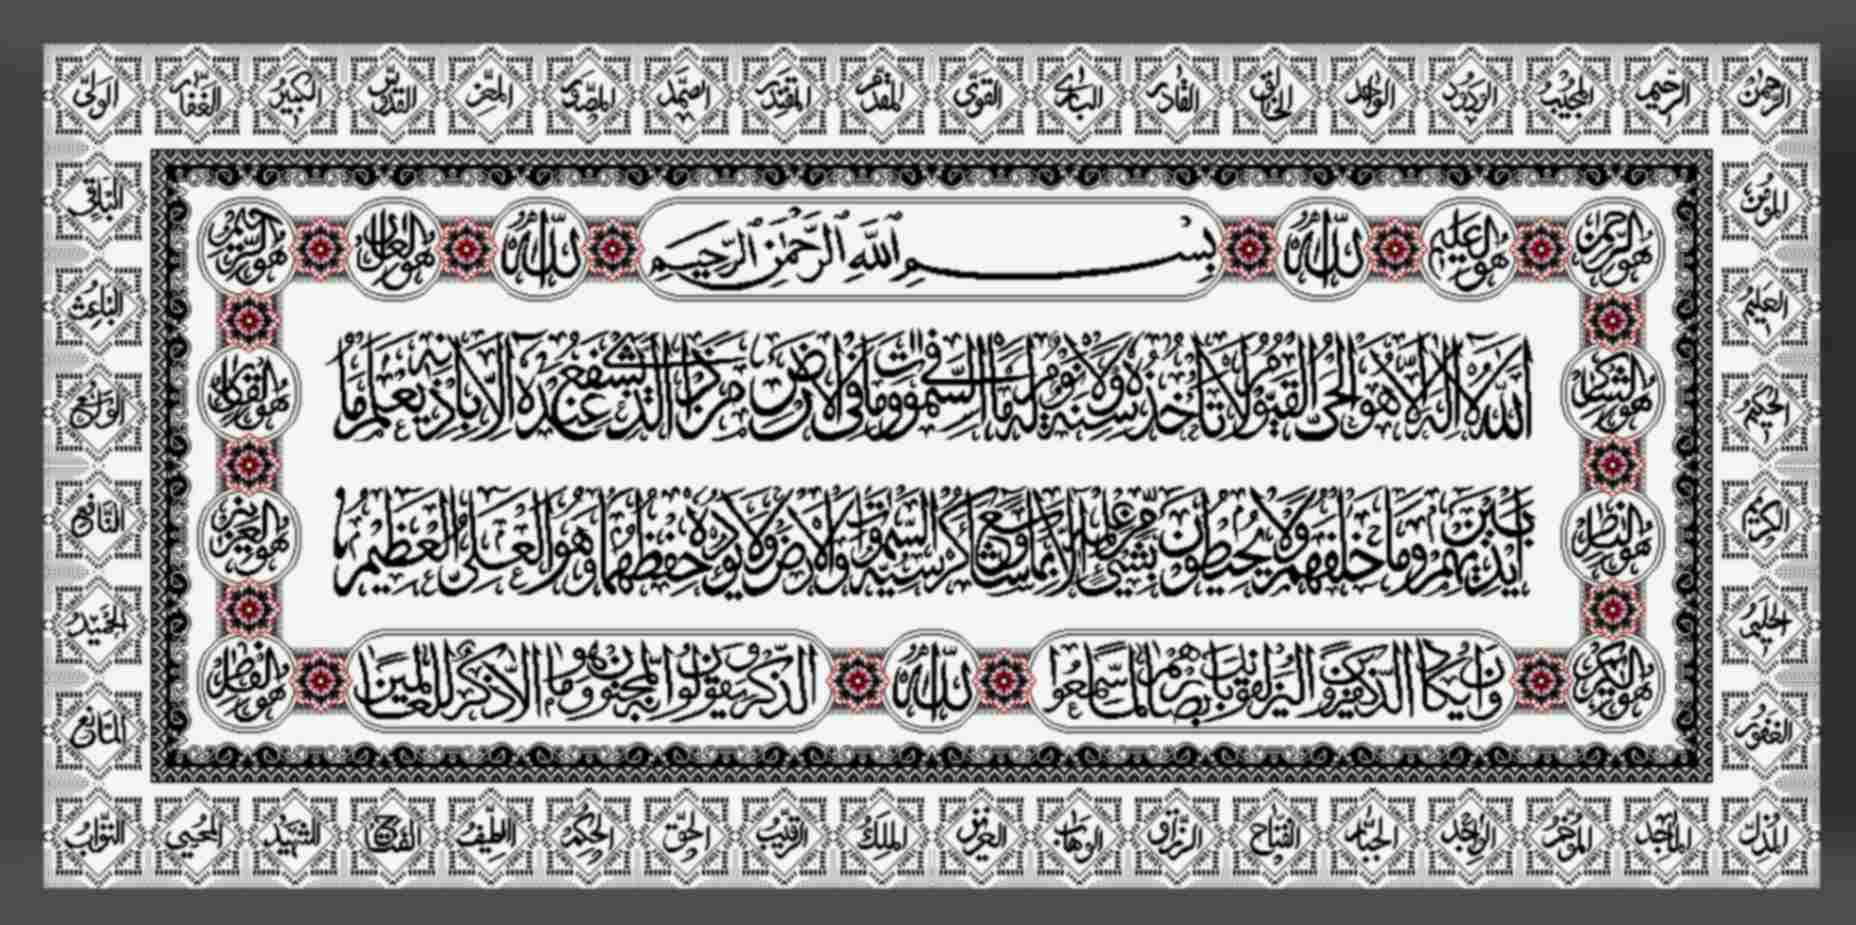 الرحمن الرحيم المجيب الودود الواحد الخالق القادر البارئ القوي المقدم المقتدر الصمد المصور المعز القدوس الكبير الغفار الولي
المؤمن الباقي
هو الرحمن هو العليم الله بسم الله الرحمن الرحيم الله هو الرحيم
العليم الباعث
الله لا اله الا هو الحي القيوم لا تأخذه سنة ولا نوم له ما في السموات وما في الارض من ذا الذي يشفع عنده الا باذنه يعلم ما
الحكيم هو القهار الواسع
الكريم هو الناظر هو العزيز النافع
بين ايديهم وما خلفهم ولا يحيطون بشيء من علمه الا بما شاء وسع كرسيه السموات والارض ولا يؤده حفظهما وهو العلي العظيم
الحميد
هو الكريم وان يكاد الذين كفروا ليزلقونك بابصارهم لما سمعوا الله الذكر ويقولون انه لمجنون وما هو الا ذكر للعالمين
الغفور المانع
المذل الماجد المؤخر الواجد الجبار الفتاح الرزاق الوهاب العزيز الملك الرقيب الحق الحكم اللطيف الفتاح الشهيد المحيي التواب